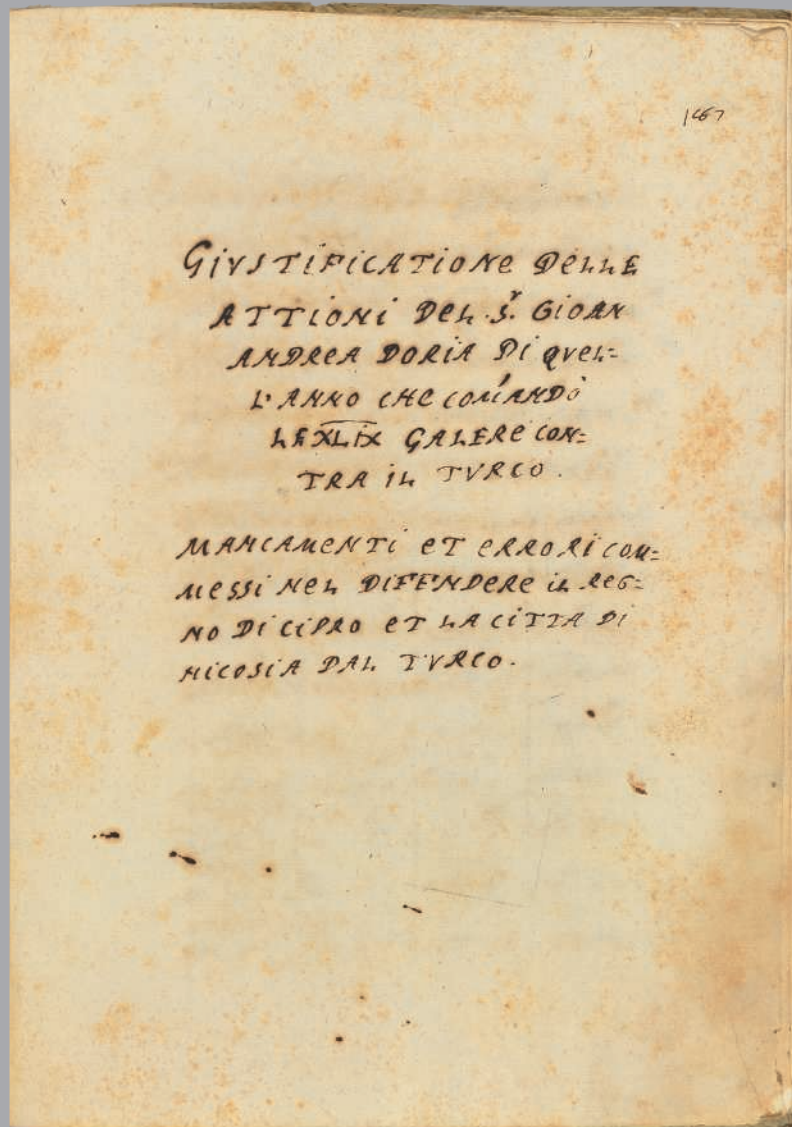 1467
GIVSTIFICATIONE DELLE
ATTIONI DEL S.r GIOAN
ANDREA DORIA DI QVEL=
L'ANNO CHE COM̃ANDÒ
LE XLIX GALERE CON=
TRA IL TVRCO.
MANCAMENTI ET ERRORI COM=
MESSI NEL DIFENDERE IL REG=
NO DI CIPRO ET LA CITTA DI
NICOSIA DAL TVRCO.